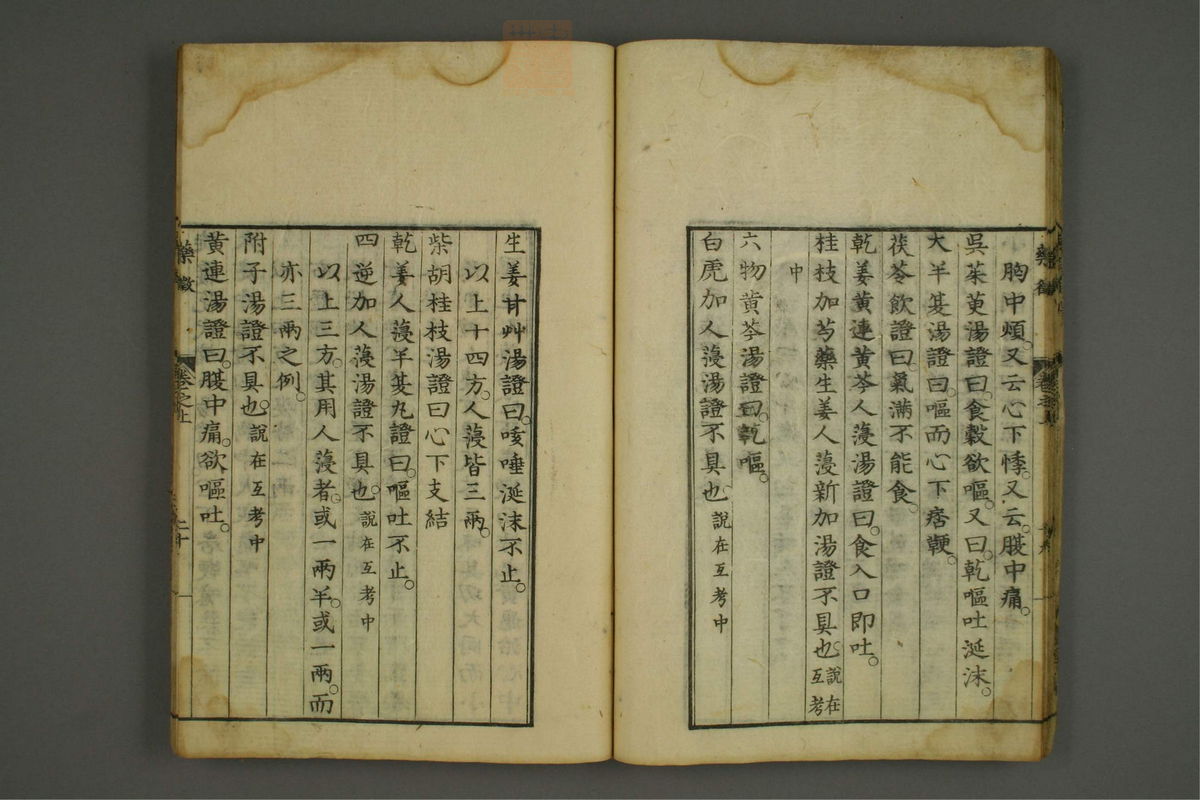 胸中煩。又云心下悸。又云。腹中痛。
吳茱萸湯證曰。食穀欲嘔。又曰。乾嘔吐涎沫。
大半夏湯證曰。嘔而心下痞鞕。
茯苓飲證曰。氣滿不能食。
乾姜黃連黃芩人蓡湯證曰。食入口即吐。
桂枝加芍藥生姜人蓡新加湯證不具也。說在互考
中
六物黃芩湯證曰。乾嘔。
白虎加人蓡湯證不具也。說在互考中
生姜甘艸湯證曰。咳唾涎沫不止。
以上十四方。人蓡皆三兩。
柴胡桂枝湯證曰心下支結
乾姜人蓡半夏丸證曰。嘔吐不止。
四逆加人蓡湯證不具也。說在互考中
以上三方。其用人蓡者。或一兩半。或一兩。而
亦三兩之例。
附子湯證不具也。說在互考中
黃連湯證曰。腹中痛。欲嘔吐。
藥徵
卷之上
二十